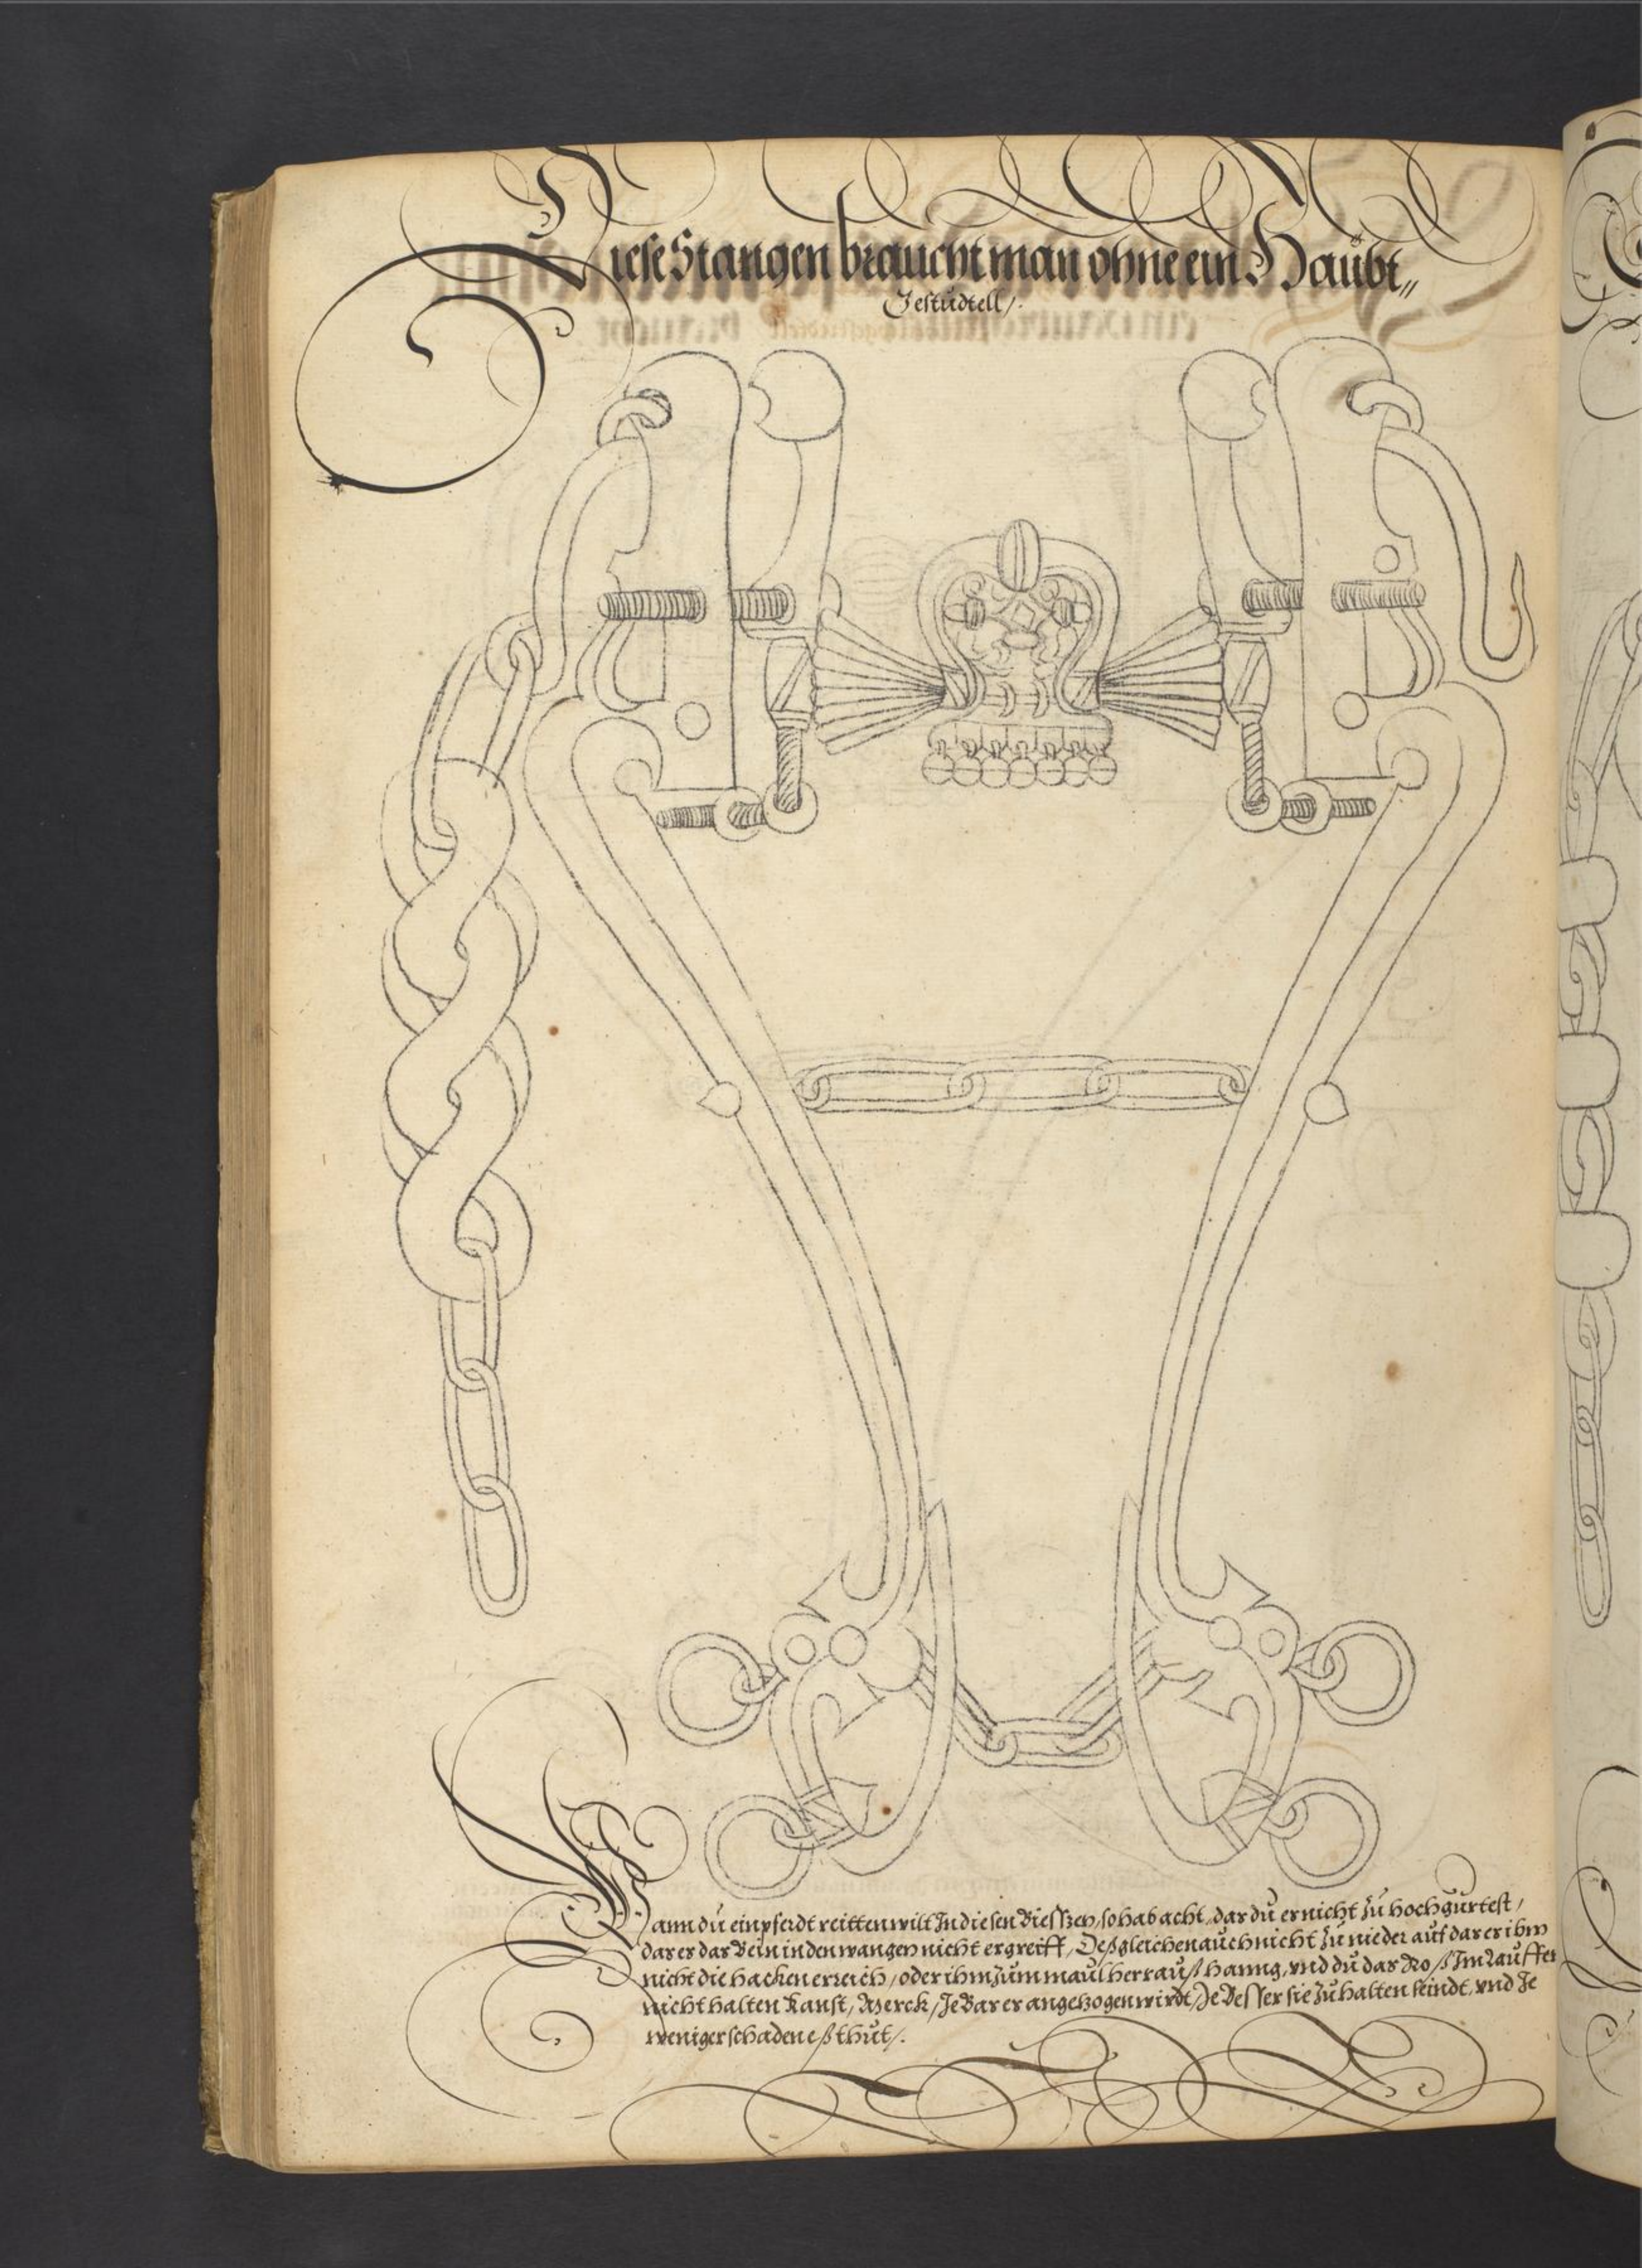 Diese Stangen braucht man ohne ein Haübt„
Gestüdtell/.
Wann dü ein pferdt reitten wilt In diesen Biesszen, so hab acht, das dü er nicht zü hoch gürtest,
das es das Bein in den wangen nicht ergreiff, Deßgleichen aüch nicht zü nieder aüf das er ihm
nicht die hacken erreich, oder ihm züm maül herraüß hanng, vnd dü das Roß Im Laüffen
nicht halten kanst, Merck, Je Bas er angetzogen wirdt, Je Besser sie zü halten seindt, vnd Je
weniger schaden eß thüt/.